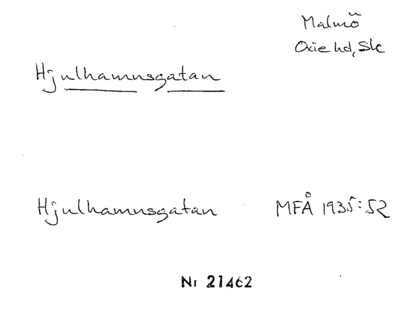 Malmö
Oxie hd, Sk
Hjulhamnsgatan
Hjulhamnsgatan MFÅ 1935:52
Nr 21462